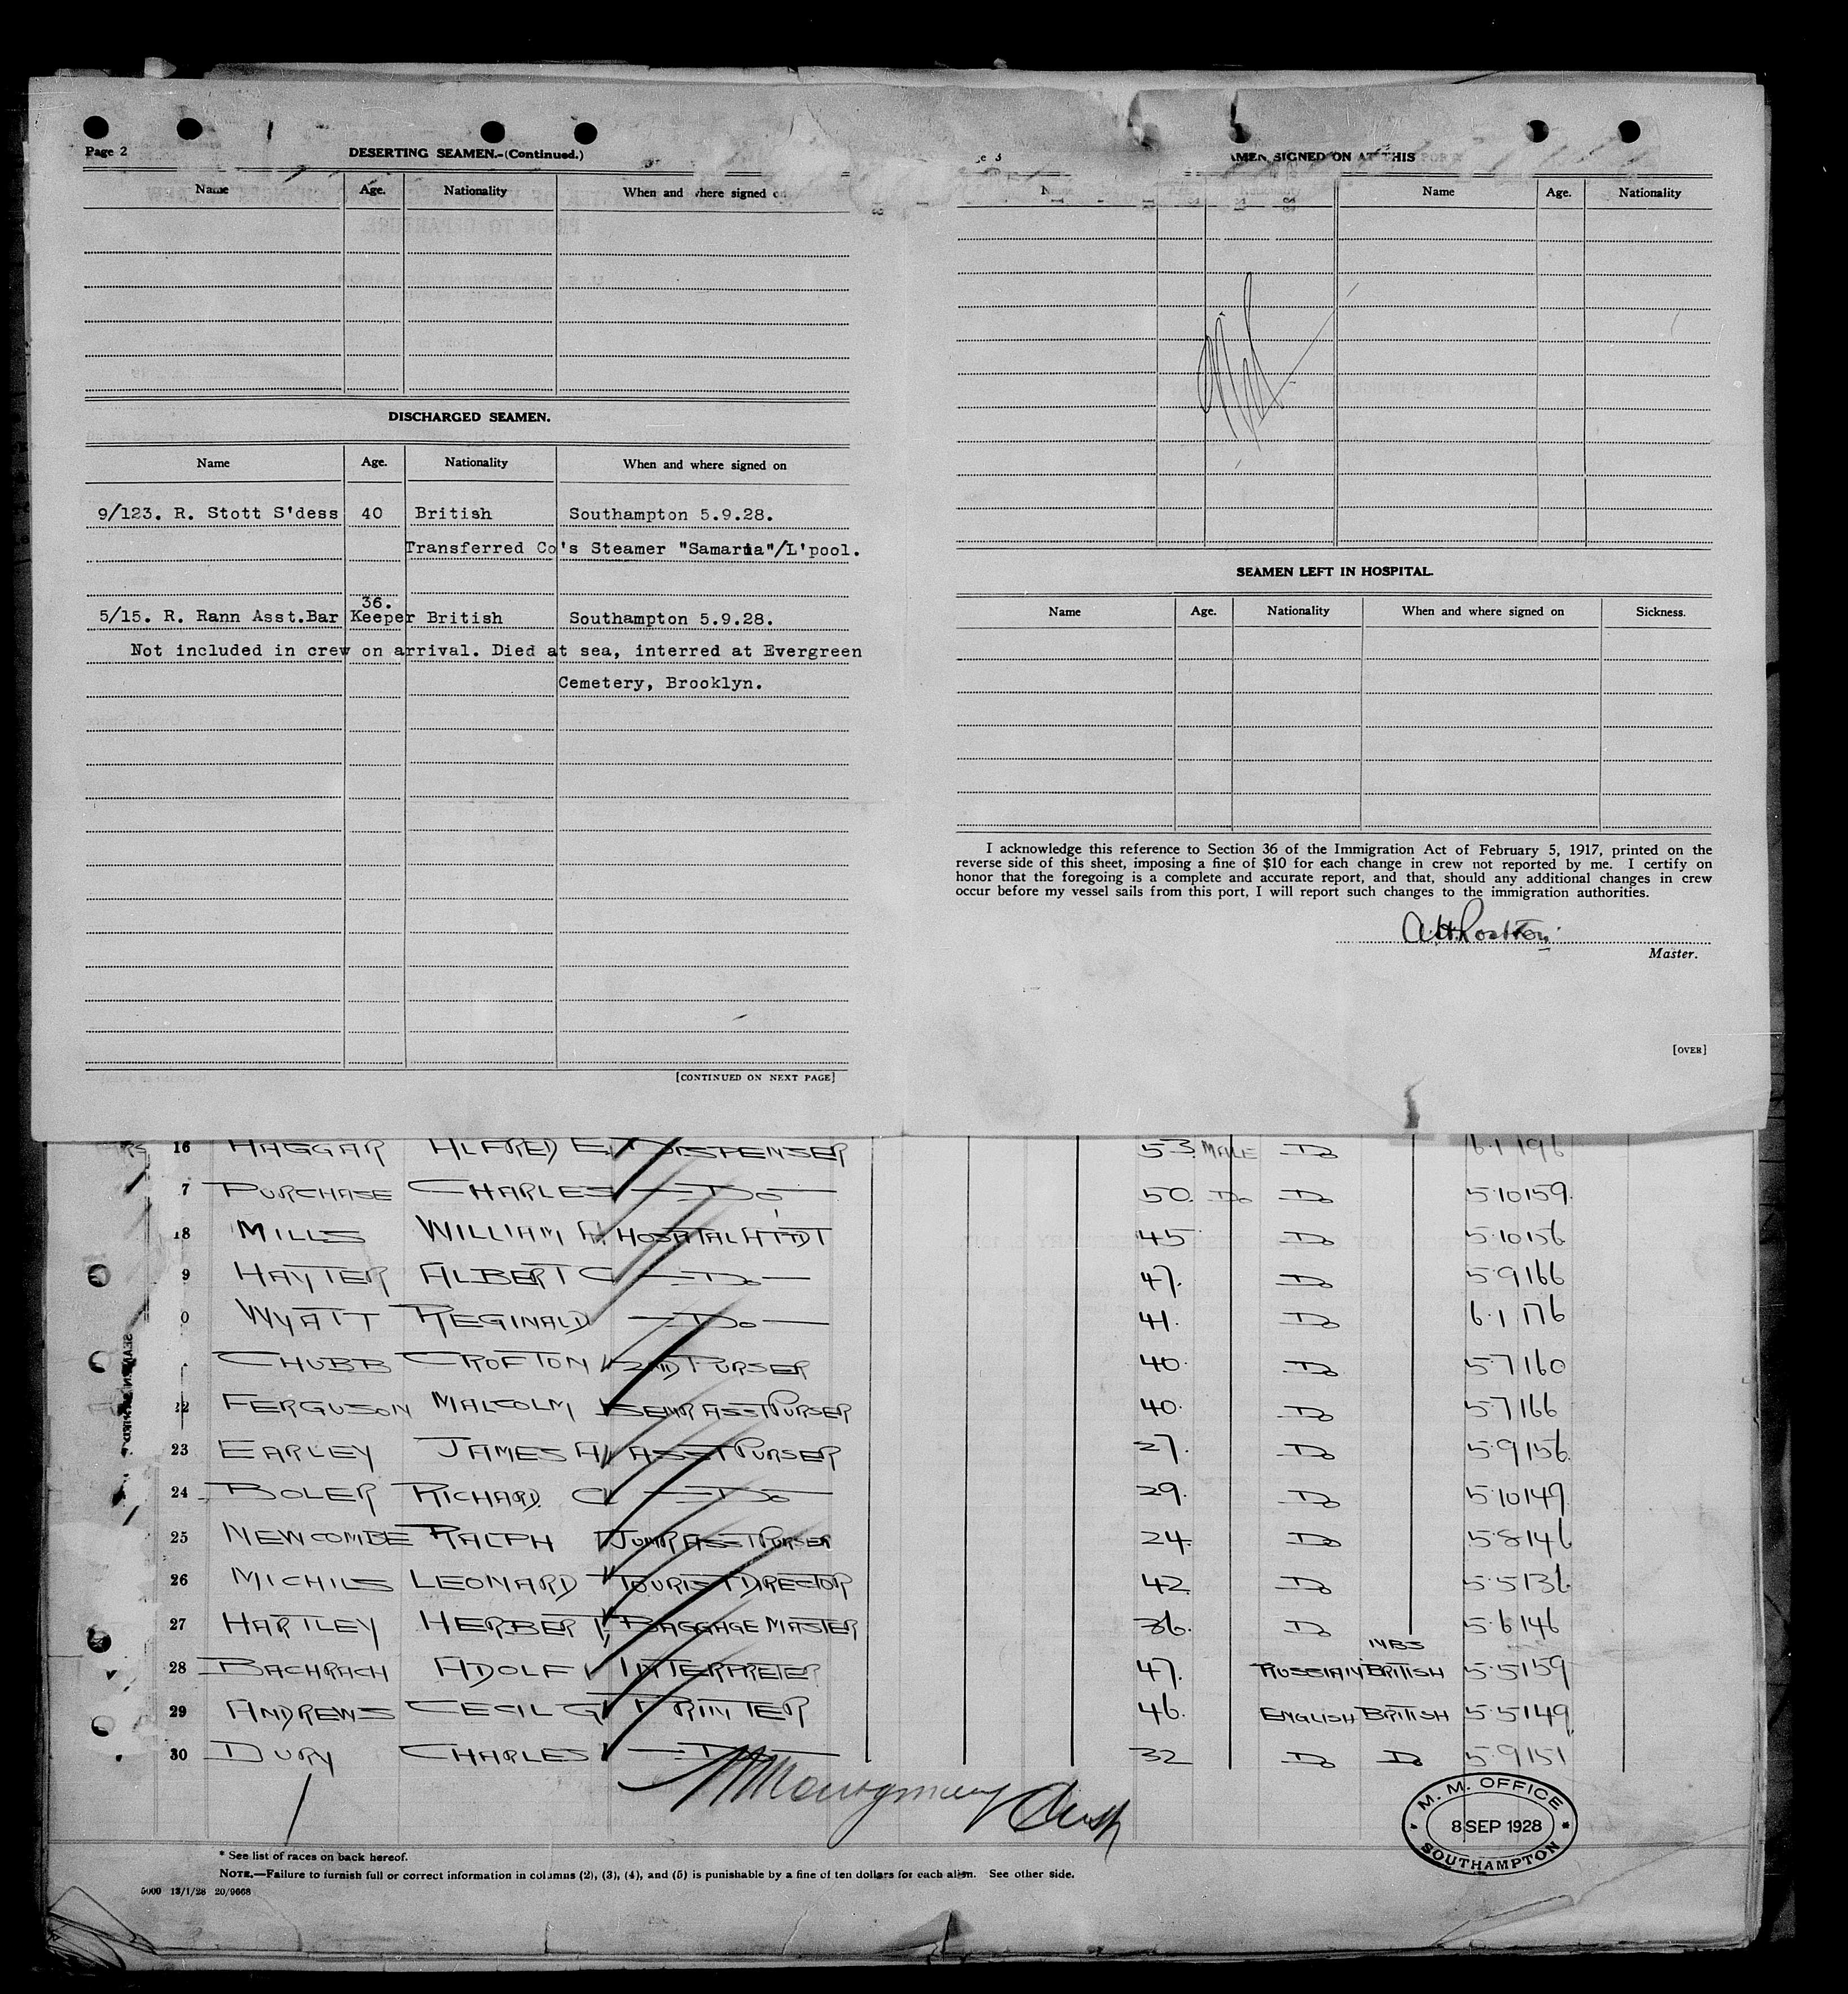 Page 2
DESERTING SEAMEN.-(Continued.)
Name Age. Nationality When and where signed on
DISCHARGED SEAMEN.
Name Age. Nationality When and where signed on
9/123. R. Stott S'dess 40 British Southampton 5.9.28.
Transferred Co's Steamer "Samaria"/L'pool.
36.
5/15. R. Rann Asst.Bar Keeper British Southampton 5.9.28.
Not included in crew on arrival. Died at sea, interred at Evergreen
Cemetery, Brooklyn.
[CONTINUED ON NEXT PAGE]
3
AMEN SIGNED ON AT THIS POR
Nationality Name Age. Nationality
SEAMEN LEFT IN HOSPITAL.
Name Age. Nationality When and where signed on Sickness.
I acknowledge this reference to Section 36 of the Immigration Act of February 5, 1917, printed on the
reverse side of this sheet, imposing a fine of $10 for each change in crew not reported by me. I certify on
honor that the foregoing is a complete and accurate report, and that, should any additional changes in crew
occur before my vessel sails from this port, I will report such changes to the immigration authorities.
A.H.Rostron
Master.
[OVER]
16 HAGGAR ALFRED E. DISPENSER 53 MALE Do 6.1 196
7 PURCHASE CHARLES Do 50 Do Do 5.10 159
18 MILLS WILLIAM A. HOSPITAL ATTDT 45 Do 5.10 156
9 HAYTER ALBERT C Do 47. Do 5.9 166
0 WYATT REGINALD Do 41. Do 6.1 176
CHUBB CROFTON 2ND PURSER 40. Do 5.7 160
22 FERGUSON MALCOLM SENR ASST PURSER 40. Do 5.7 166
23 EARLEY JAMES A ASST PURSER 27. Do 5.9 156
24 BOLER RICHARD C Do 29. Do 5.10 149
25 NEWCOMBE RALPH JUNR ASST PURSER 24. Do 5.8 146
26 MICHILS LEONARD TOURIST DIRECTOR 42 Do 5.5 136
27 HARTLEY HERBERT BAGGAGE MASTER 36. Do 5.6 146
28 BACHRACH ADOLF INTERPRETER 47. RUSSIAN BRITISH 5.5 159
29 ANDREWS CECIL G PRINTER 46. ENGLISH BRITISH 5.5 149
30 DURY CHARLES Do 32 Do Do 5.9 151
M. M. OFFICE
8 SEP 1928
SOUTHAMPTON
* See list of races on back hereof.
NOTE.—Failure to furnish full or correct information in columns (2), (3), (4), and (5) is punishable by a fine of ten dollars for each alien. See other side.
5000 13/1/28 20/9668